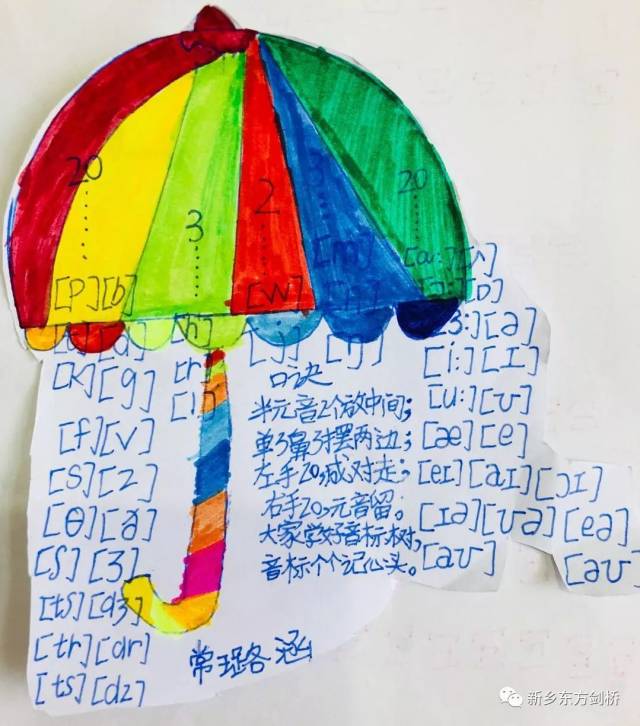 20
3
2
3
20
[p][b]
[t][d]
[k][g]
[f][v]
[s][z]
[θ][ð]
[ʃ][ʒ]
[tʃ][dʒ]
[tr][dr]
[ts][dz]
[h]
[r]
[l]
[w]
[j]
[m]
[n]
[ŋ]
[ɑ:][ʌ]
[ɔ:][ɒ]
[ɜ:][ə]
[i:][ɪ]
[u:][ʊ]
[æ][e]
[eɪ][aɪ][ɔɪ]
[ɪə][ʊə][eə]
[aʊ][əʊ]
口诀
半元音2个放中间;
单3鼻3摆两边;
左手20,成对走;
右手20,元音留。
大家学好音标树,
音标个个记心头。
常珺涵
新乡东方剑桥